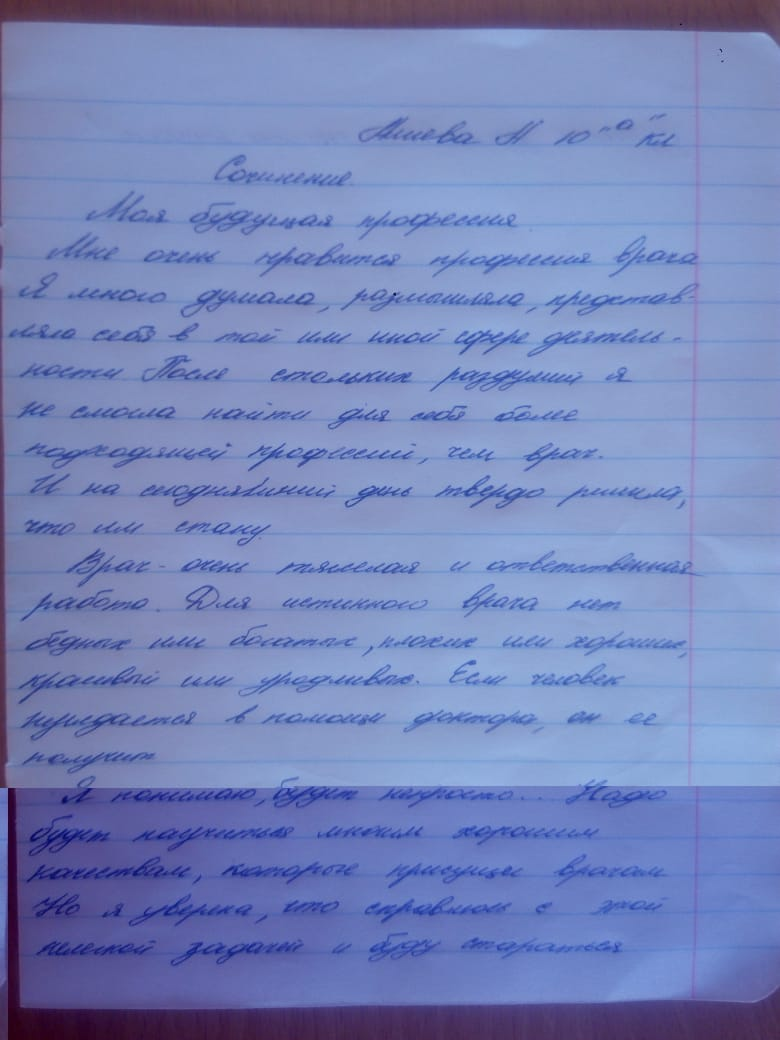 Н 10 "а" кл
Сочинение.
Моя будущая профессия.
Мне очень нравится профессия врача
Я много думала, размышляла, представ-
ляла себя в той или иной сфере деятель-
ности После стольких раздумий я
не смогла найти для себя более
подходящей профессий, чем врач.
И на сегодняшний день твердо решила,
что им стану.
Врач - очень тяжелая и ответственная
работа. Для истинного врача нет
бедных или богатых, плохих или хороших,
красивый или уродливых. Если человек
нуждается в помощи доктора, он ее
получит
Я понимаю, будет непросто... Надо
будет научиться многим хорошим
качествам, которые присущи врачам
Но я уверена, что справлюсь с этой
нелегкой задачей и буду стараться